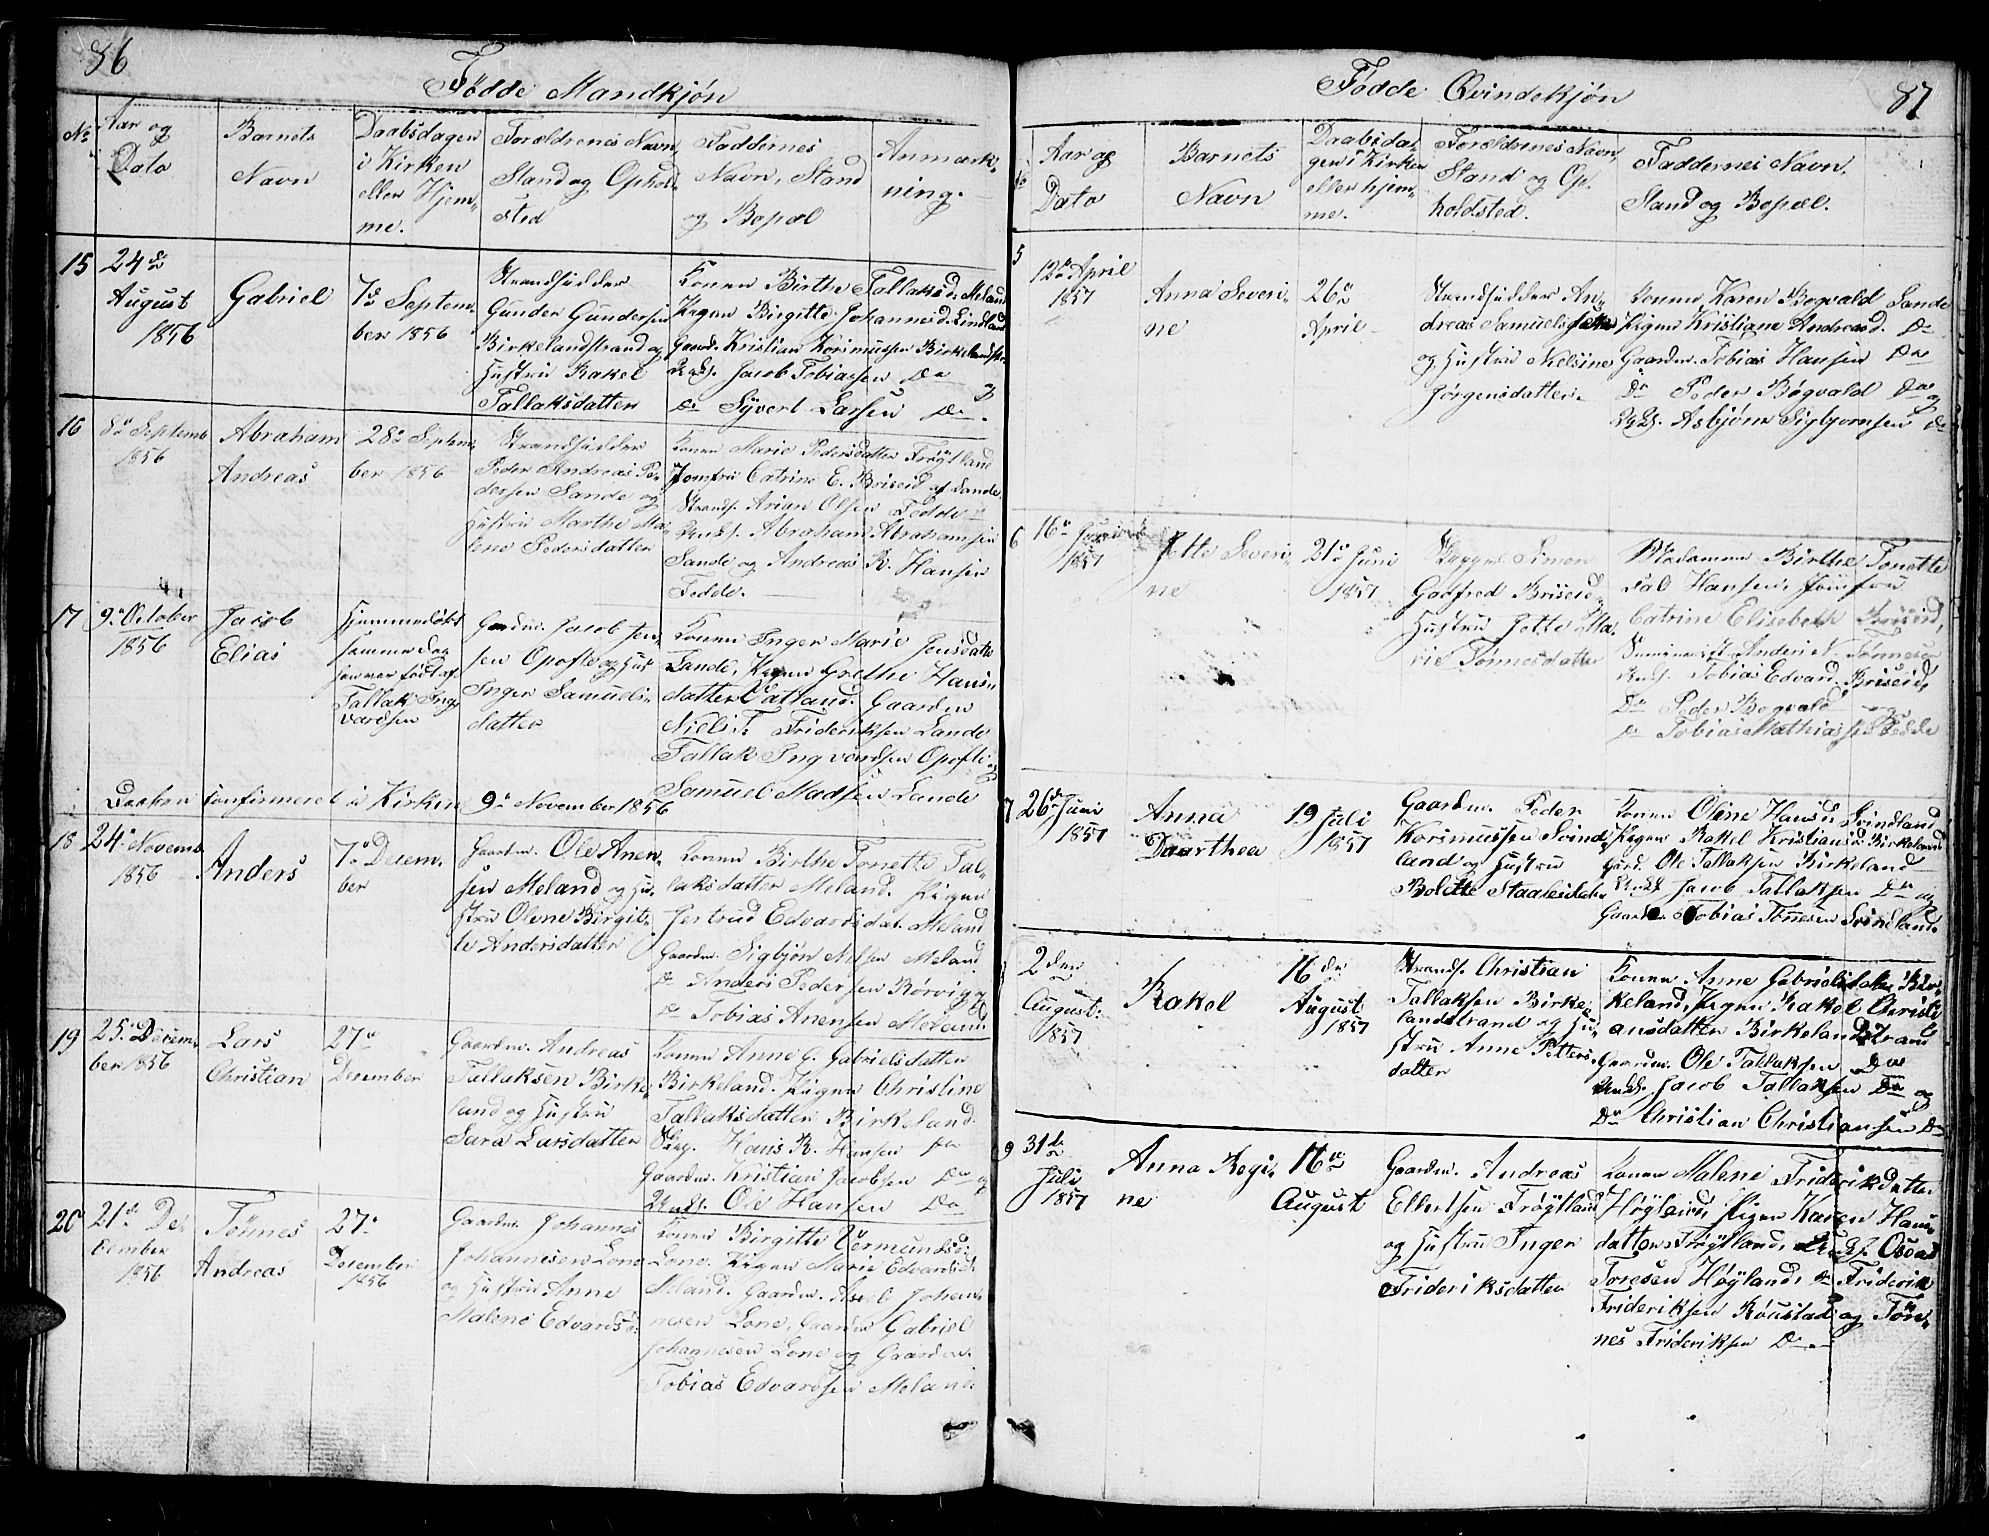 86
Födde Mandkjön
No
Aar og
Dato
Barnets
Navn
Daabsdagen
i Kirken
eller Hjem-
me.
Foroldrenes Navn,
Stand og Ophol-
sted
Faddernes
Navn, Stand
og Bopæl
Anmærk-
ning.
15
24de
August
1856
Gabriel
7de Septem-
ber 1856
Strandsidder
Gunder Gundersen
Birkelandstrand og
Hustru Rakel
Tallaksdatter
Konen Birthe Tallaksd. Meland
Pigen Birgitte Johannesd. Lindland
Gaardm. Kristian Korimussen Birkeland
Ungk. Jacob Tobiassen Do
Do Syvert Larsen Do
16
8de Septemb
1856
Abraham
Andreas
28de Septem-
ber 1856
Strandsidder
Peder Andreas Pe-
dersen Sande og
Hustru Marthe Ma-
lene Pedersdatter
Konen Marie Pedersdatter Frøytland
Jomfru Catrine E. Briseid af Sande
Strands. Arian Olsen Fedde
Ungk. Abraham Abrahamsen
Sande og Andreas R. Hansen
Fedde.
17
9de October
1856
Jacob
Elias
Hjemmedøbt
samme Dag
som var født af
Tallak Ing-
vardsen
Gaardm. Jacob Jen-
sen Opofte og Hust
Inger Samuels-
datter
Konen Inger Marie Jensdatter
Sande, Pigen Grethe Hans-
datter Vatland. Gaarden
Niels F. Frideriksen Sande
Tallak Ingvardsen Opofte og
Samuel Madsen Sande
Daaben Confirmeret i Kirken 9de November 1856
18
24de Novemb
1856
Anders
7de Decem-
ber
Gaardm. Ole Anen-
sen Meland og Hu-
stru Olene Birgit-
te Andersdatter
Konen Birthe Tonette Tal-
laksdatter Meland. Pigen
Jertrud Edvardsdat. Meland
Gaardm. Sigbjön Nilsen Meland
Do Anders Pedersen Rörvig og
Do Tobias Anensen Meland
19
25de Decem-
ber 1856
Lars
Christian
27de
December
Gaardm. Andreas
Tallaksen Birke-
land og Hustru
Sara Larsdatter
Konen Anne G. Gabrielsdatter
Birkeland. Pigen Christine
Tallaksdatter Birkeland
Hans R. Hansen Do
Gaardm. Kristian Jacobsen Do og
Ungk. Ole Hansen Do
20
21de De-
cember
1856
Tönnes
Andreas
27de
December
1856
Gaardm. Johannes
Johannesen Lone
og Hustru Anne
Malene Edvardsd.
Konen Birgitte Vermundsd.
Lone. Pigen Marie Edvardsd.
Meland. Gaardm. Axel Johan-
nesen Lone, Gaardm Gabriel
Johannesen Lone og Gaardm.
Tobias Edvardsen Meland
87
Födde Qvindekjön
No
Aar og
Dato
Barnets
Navn
Daabsda-
gen i Kirken
eller hjem-
me.
Foroldrenes Navn,
Stand og Op-
holdsted.
Faddernes Navn,
Stand og Bopæl.
5
12de April
1857
Anna Severi-
ne
26de
April
Strandsidder An-
dreas Samuelsen
og Hustru Nelsine
Jörgensdatter.
Konen Karen Bøgvald Sande
Pigen Kristiane Andreasd. Do
Gaardm. Tobias Hansen Do
Do Peder Bøgvald Do og
Ungk. Asbjörn Sigbjornsen Do
6
16de Juni
1857
Jette Severi-
ne
21de Juni
1857
Simon
Godfred Briseid
Hustru Jette Ma-
rie Tönnesdatter
Madamme Birthe Tonette
Hansen, Jomfru
Catrine Elisebeth Briseid,
Anders N. Tönnesen
Ungk. Tobias Edvard Briseid,
Do Peder Bøgvald og
Do Tobias Mathiassen Fedde
7
26de Juni
1857
Anna
Daarthea
19 Juli
1857
Gaardm. Peder
Korimussen Svind-
land og Hustru
Bolette
Konen Olene Hansd. Svindland
Pigen Rakel Kristiansd. Birkeland
Gaard. Ole Tallaksen Birkeland
Ungk. Jacob Tallaksen Do og
Gaardm. Tobias Tönnesen Svindland.
2den
August
1857
Rakel
16de
August
1857
Strands. Christian
Tallaksen Birke-
landstrand og Hu-
stru Anne Petters-
datter
Konen Anne Gabrielsdatter Bir-
keland, Pigen Rakel Christi-
ansdatter Birkelandstrand
Gaardm. Ole Tallaksen Do
Ungk. Jacob Tallaksen Do og
Do Christian Christiansen Do
9
31de
Juli
1857
Anna Regi-
ne
16de
August
Gaardm. Andreas
Elbertsen Frøytland
og Hustru Inger
Frideriksdatter
Konen Malene Frideriksdatter
Høyland, Pigen Karen Hans-
datter Frøytland, Osvas
Toresen Høyland, Do Friderik
Frideriksen Röustad og Tön-
nes Frideriksen Do